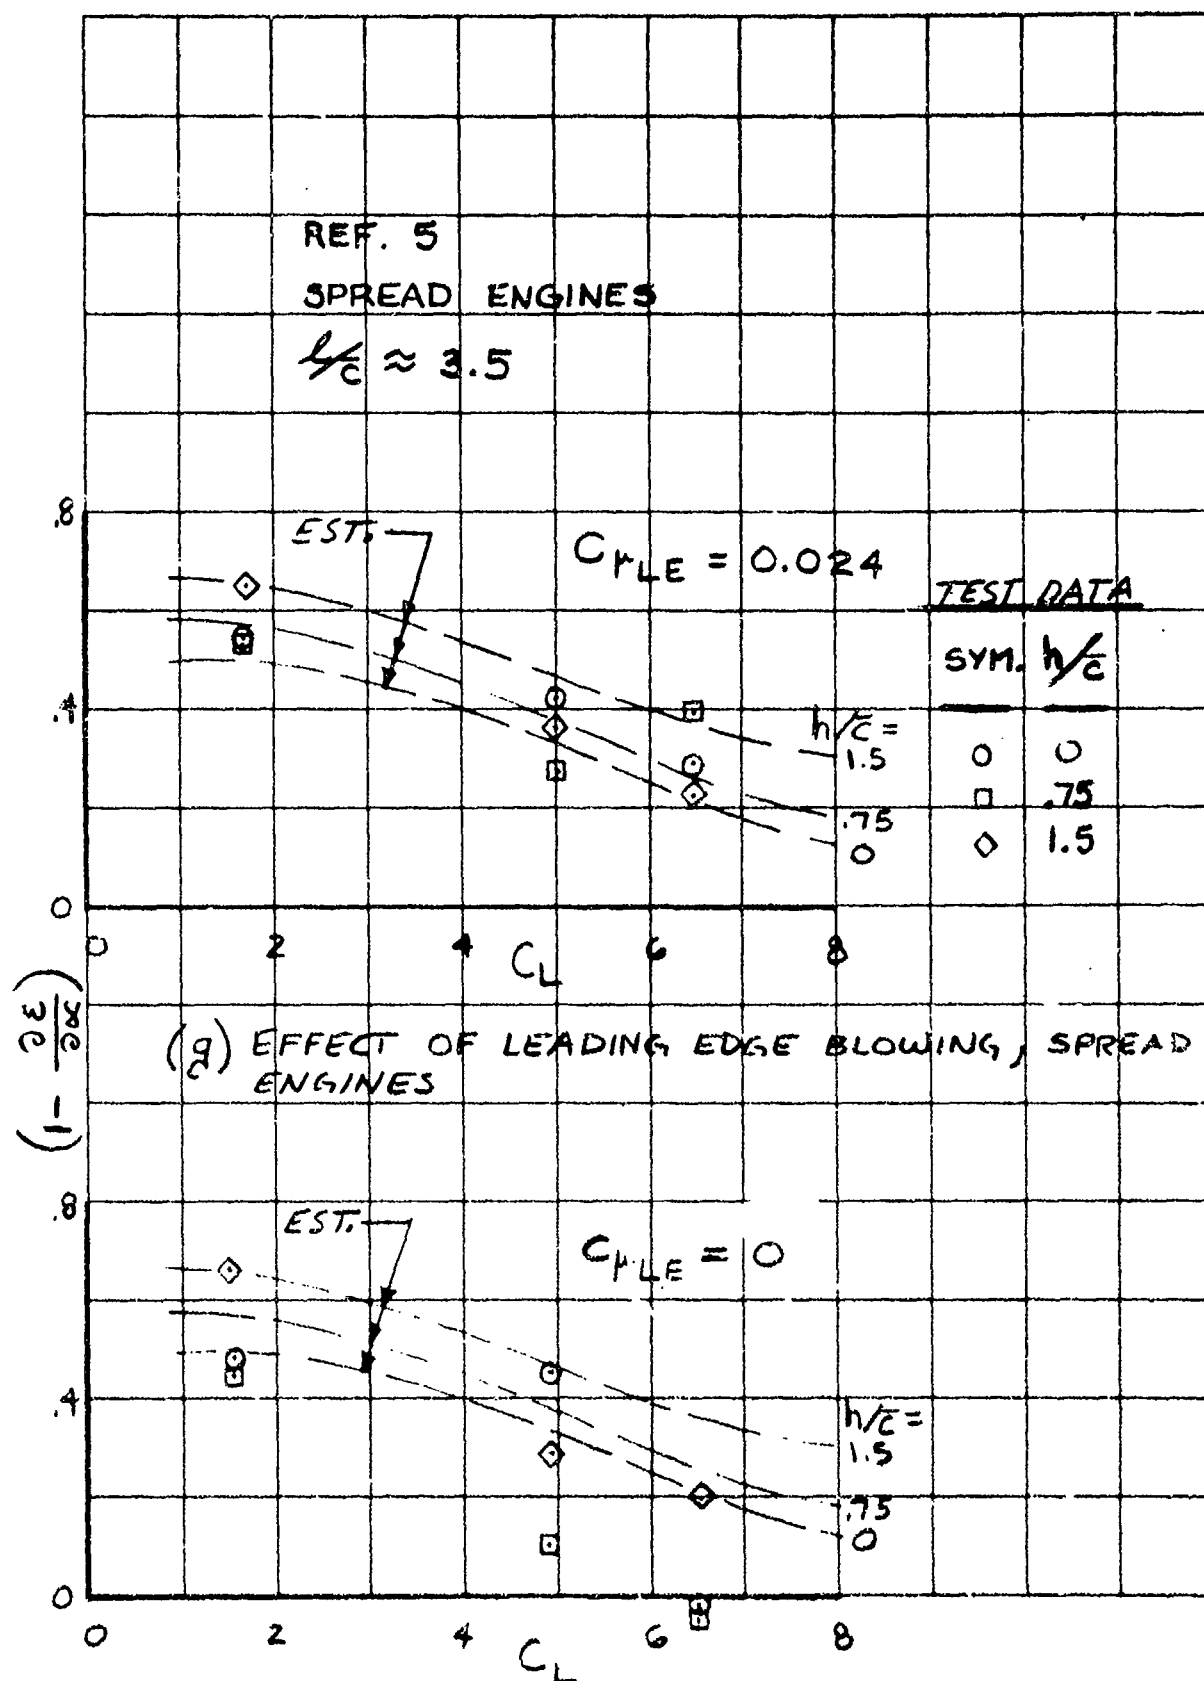 REF. 5
SPREAD ENGINES
l/c̄ ≈ 3.5
.8
EST.
CμLE = 0.024
TEST DATA
SYM. h/c̄
.4
h/c̄ =
1.5
O O
□ .75
.75
◇ 1.5
O
0
0 2 4 6 8
CL
(1- ∂ε/∂α)
(g) EFFECT OF LEADING EDGE BLOWING, SPREAD
ENGINES
.8
EST.
CμLE = 0
.4
h/c̄ =
1.5
.75
O
0
0 2 4 6 8
CL